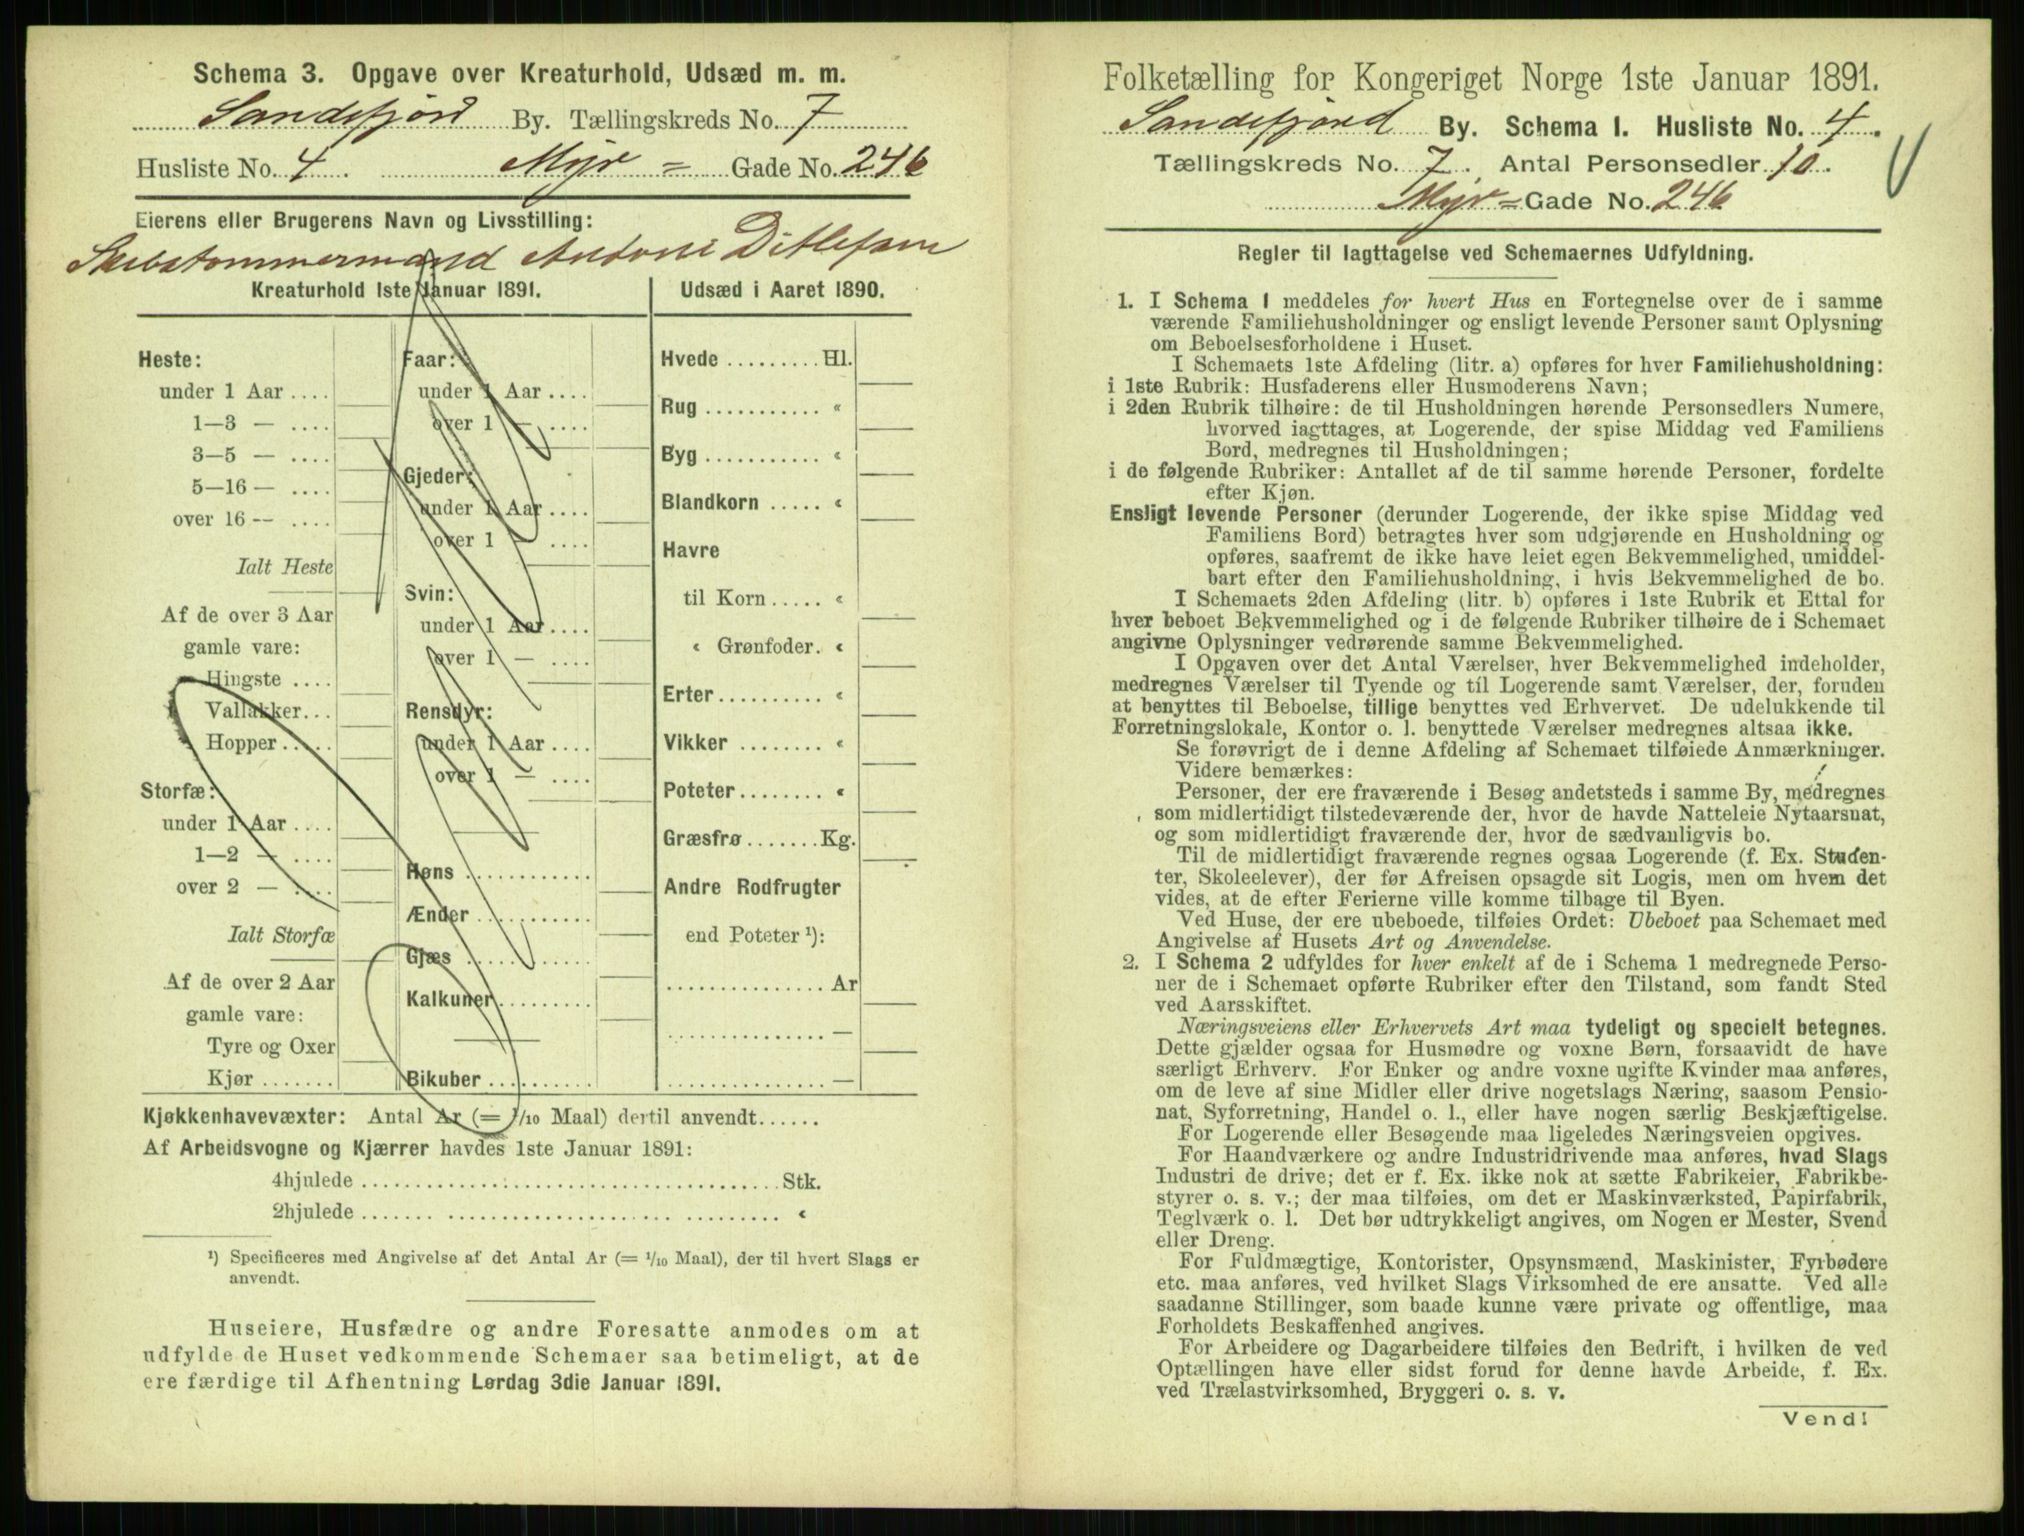 Schema 3. Opgave over Kreaturhold, Udsæd m. m.
Sandefjord By. Tællingskreds No. 7
Husliste No. 4. Myr = Gade No. 246
Eierens eller Brugerens Navn og Livsstilling:
Skibstømmermand Ditlefsen
Kreaturhold 1ste Januar 1891.
Heste:
under 1 Aar ....
1—3 — ....
3—5 — ....
5—16 — ....
over 16 — ....
Ialt Heste
Af de over 3 Aar
gamle vare:
Hingste ....
Vallakker...
Hopper .....
Storfæ:
under 1 Aar ....
1—2 — ....
over 2 — ....
Ialt Storfæ
Af de over 2 Aar
gamle vare:
Tyre og Oxer
Kjør .......
Faar:
under 1 Aar ....
over 1 — ....
Gjeder:
under 1 Aar ....
over 1 — ....
Svin:
under 1 Aar ....
over 1 — ....
Rensdyr:
under 1 Aar ....
over 1 — ....
Høns ............
Ænder ...........
Gjæs ............
Kalkuner.........
Bikuber ..........
Udsæd i Aaret 1890.
Hvede ......... Hl.
Rug ........... «
Byg ........... «
Blandkorn ..... «
Havre
til Korn ..... «
« Grønfoder. «
Erter.......... «
Vikker ........ «
Poteter........ «
Græsfrø ....... Kg.
Andre Rodfrugter
end Poteter ¹):
............... Ar
............... —
............... —
Kjøkkenhavevæxter: Antal Ar (= 1/10 Maal) dertil anvendt......
Af Arbeidsvogne og Kjærrer havdes 1ste Januar 1891:
4hjulede ........................................ Stk.
2hjulede ........................................ «
¹) Specificeres med Angivelse af det Antal Ar (= 1/10 Maal), der til hvert Slags er
anvendt.
Huseiere, Husfædre og andre Foresatte anmodes om at
udfylde de Huset vedkommende Schemaer saa betimeligt, at de
ere færdige til Afhentning Lørdag 3die Januar 1891.
Folketælling for Kongeriget Norge 1ste Januar 1891.
Sandefjord By. Schema 1. Husliste No. 4.
Tællingskreds No. 7. Antal Personsedler 10.
Myr = Gade No. 246
Regler til Iagttagelse ved Schemaernes Udfyldning.
1. I Schema 1 meddeles for hvert Hus en Fortegnelse over de i samme
værende Familiehusholdninger og ensligt levende Personer samt Oplysning
om Beboelsesforholdene i Huset.
I Schemaets 1ste Afdeling (litr. a) opføres for hver Familiehusholdning:
i 1ste Rubrik: Husfaderens eller Husmoderens Navn;
i 2den Rubrik tilhøire: de til Husholdningen hørende Personsedlers Numere,
hvorved iagttages, at Logerende, der spise Middag ved Familiens
Bord, medregnes til Husholdningen;
i de følgende Rubriker: Antallet af de til samme hørende Personer, fordelte
efter Kjøn.
Ensligt levende Personer (derunder Logerende, der ikke spise Middag ved
Familiens Bord) betragtes hver som udgjørende en Husholdning og
opføres, saafremt de ikke have leiet egen Bekvemmelighed, umiddel-
bart efter den Familiehusholdning, i hvis Bekvemmelighed de bo.
I Schemaets 2den Afdeling (litr. b) opføres i 1ste Rubrik et Ettal for
hver beboet Bekvemmelighed og i de følgende Rubriker tilhøire de i Schemaet
angivne Oplysninger vedrørende samme Bekvemmelighed.
I Opgaven over det Antal Værelser, hver Bekvemmelighed indeholder,
medregnes Værelser til Tyende og til Logerende samt Værelser, der, foruden
at benyttes til Beboelse, tillige benyttes ved Erhvervet. De udelukkende til
Forretningslokale, Kontor o. l. benyttede Værelser medregnes altsaa ikke.
Se forøvrigt de i denne Afdeling af Schemaet tilføiede Anmærkninger.
Videre bemærkes:
Personer, der ere fraværende i Besøg andetsteds i samme By, medregnes
som midlertidigt tilstedeværende der, hvor de havde Natteleie Nytaarsnat,
og som midlertidigt fraværende der, hvor de sædvanligvis bo.
Til de midlertidigt fraværende regnes ogsaa Logerende (f. Ex. Studen-
ter, Skoleelever), der før Afreisen opsagde sit Logis, men om hvem det
vides, at de efter Ferierne ville komme tilbage til Byen.
Ved Huse, der ere ubeboede, tilføies Ordet: Ubeboet paa Schemaet med
Angivelse af Husets Art og Anvendelse.
2. I Schema 2 udfyldes for hver enkelt af de i Schema 1 medregnede Perso-
ner de i Schemaet opførte Rubriker efter den Tilstand, som fandt Sted
ved Aarsskiftet.
Næringsveiens eller Erhvervets Art maa tydeligt og specielt betegnes.
Dette gjælder ogsaa for Husmødre og voxne Børn, forsaavidt de have
særligt Erhverv. For Enker og andre voxne ugifte Kvinder maa anføres,
om de leve af sine Midler eller drive nogetslags Næring, saasom Pensio-
nat, Syforretning, Handel o. l., eller have nogen særlig Beskjæftigelse.
For Logerende eller Besøgende maa ligeledes Næringsveien opgives.
For Haandværkere og andre Industridrivende maa anføres, hvad Slags
Industri de drive; det er f. Ex. ikke nok at sætte Fabrikeier, Fabrikbe-
styrer o. s. v.; der maa tilføies, om det er Maskinværksted, Papirfabrik,
Teglværk o. l. Det bør udtrykkeligt angives, om Nogen er Mester, Svend
eller Dreng.
For Fuldmægtige, Kontorister, Opsynsmænd, Maskinister, Fyrbødere
etc. maa anføres, ved hvilket Slags Virksomhed de ere ansatte. Ved alle
saadanne Stillinger, som baade kunne være private og offentlige, maa
Forholdets Beskaffenhed angives.
For Arbeidere og Dagarbeidere tilføies den Bedrift, i hvilken de ved
Optællingen have eller sidst forud for denne havde Arbeide, f. Ex.
ved Trælastvirksomhed, Bryggeri o. s. v.
Vend!